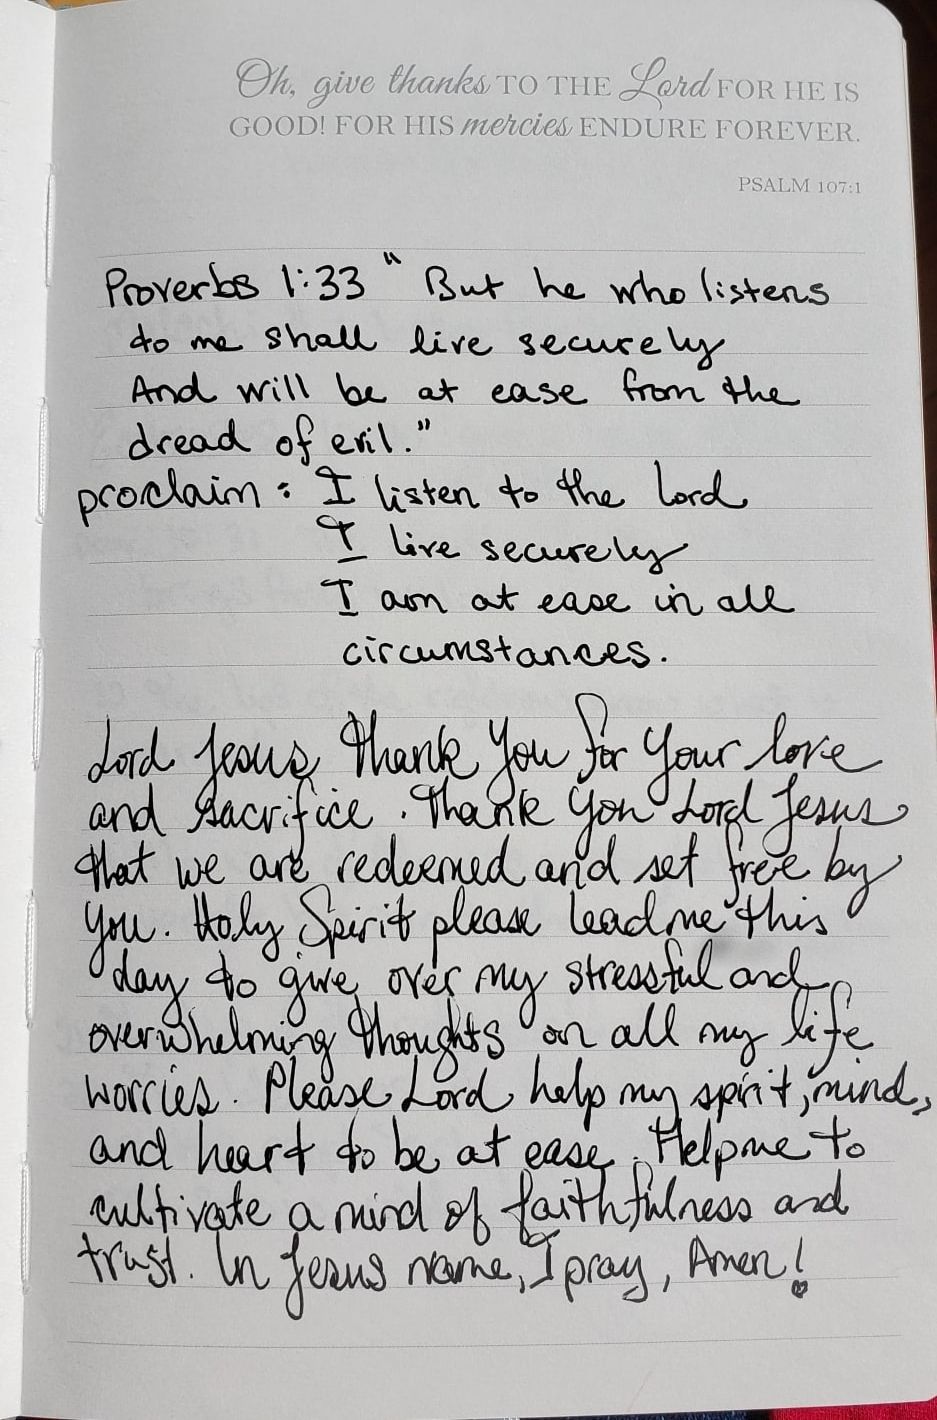 Oh, give thanks TO THE Lord FOR HE IS
GOOD! FOR HIS mercies ENDURE FOREVER.
PSALM 107:1
Proverbs 1:33 "But he who listens
to me shall live securely
And will be at ease from the
dread of evil."
proclaim: I listen to the Lord
I live securely
I am at ease in all
circumstances.
Lord Jesus, thank You for Your love
and sacrifice. Thank You Lord Jesus
that we are redeemed and set free by
You. Holy Spirit please lead me this
day to give over my stressful and
overwhelming thoughts on all my life
worries. Please Lord help my spirit, mind,
and heart to be at ease. Help me to
cultivate a mind of faithfulness and
trust. In Jesus name, I pray, Amen!